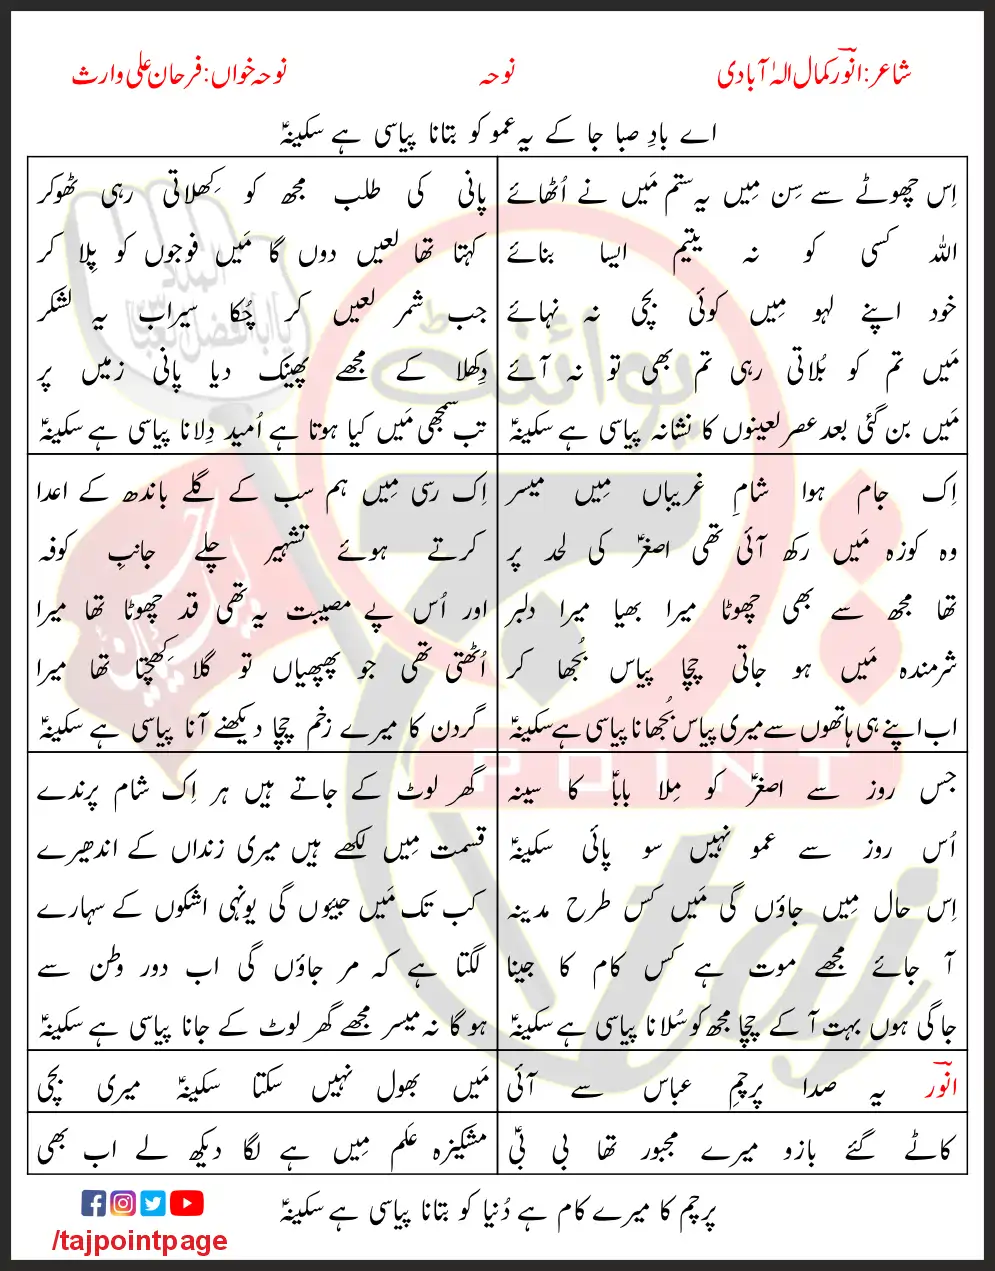 شاعر: انورؔ کمال الہٰ آبادی
نوحہ
نوحہ خواں: فرحان علی وارث
اے بادِ صبا جا کے یہ عمو کو بتانا پیاسی ہے سکینہؑ
اِس چھوٹے سے سِن مِیں یہ ستم مَیں نے اُٹھائے
اللہ کسی کو نہ یتیم ایسا بنائے
خود اپنے لہو مِیں کوئی بچی نہ نہائے
مَیں تم کو بُلاتی رہی تم بھی تو نہ آئے
مَیں بن گئی بعد عصر لعینوں کا نشانہ پیاسی ہے سکینہؑ
پانی کی طلب مجھ کو کِھلاتی رہی ٹھوکر
کہتا تھا لعیں دوں گا مَیں فوجوں کو پِلا کر
جب شمر لعیں کر چُکا سیراب یہ لشکر
دِکھلا کے مجھے پھینک دیا پانی زمیں پر
تب سمجھی مَیں کیا ہوتا ہے اُمید دِلانا پیاسی ہے سکینہؑ
اِک جام ہوا شامِ غریباں مِیں میسر
وہ کوزہ مَیں رکھ آئی تھی اصغرؑ کی لحد پر
تھا مجھ سے بھی چھوٹا میرا بھیا میرا دلبر
شرمندہ مَیں ہو جاتی چچا پیاس بُجھا کر
اب اپنے ہی ہاتھوں سے میری پیاس بُجھانا پیاسی ہے سکینہؑ
اِک رسی مِیں ہم سب کے گلے باندھ کے اعدا
کرتے ہوئے تشہیر چلے جانبِ کوفہ
اور اُس پے مصیبت یہ تھی قد چھوٹا تھا میرا
اُٹھتی تھی جو پھپھیاں تو گلا کِھچتا تھا میرا
گردن کا میرے زخم چچا دیکھنے آنا پیاسی ہے سکینہؑ
جس روز سے اصغرؑ کو مِلا باباؑ کا سینہ
اُس روز سے عمو نہیں سو پائی سکینہؑ
اِس حال مِیں جاؤں گی مَیں کس طرح مدینہ
آ جائے مجھے موت ہے کس کام کا جینا
جاگی ہوں بہت آ کے چچا مجھ کو سُلانا پیاسی ہے سکینہؑ
گھر لوٹ کے جاتے ہیں ہر اِک شام پرندے
قسمت مِیں لکھے ہیں میری زنداں کے اندھیرے
کب تک مَیں جیئوں گی یونہی اشکوں کے سہارے
لگتا ہے کہ مر جاؤں گی اب دور وطن سے
ہو گا نہ میسر مجھے گھر لوٹ کے جانا پیاسی ہے سکینہؑ
انورؔ یہ صدا پرچمِ عباس سے آئی
مَیں بھول نہیں سکتا سکینہؑ میری بچی
کاٹے گئے بازو میرے مجبور تھا بی بیؑ
مشکیزہ علَم مِیں ہے لگا دیکھ لے اب بھی
پرچم کا میرے کام ہے دُنیا کو بتانا پیاسی ہے سکینہؑ
/tajpointpage
پوائنٹ
POINT
taj